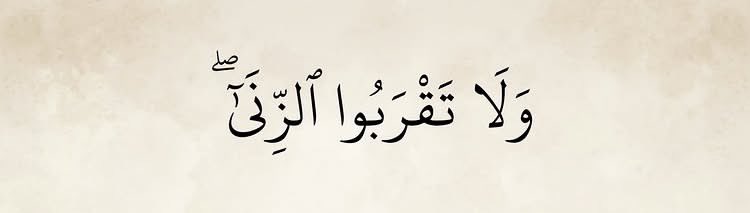 وَلَا تَقْرَبُوا ٱلزِّنَىٰٓ ۖ